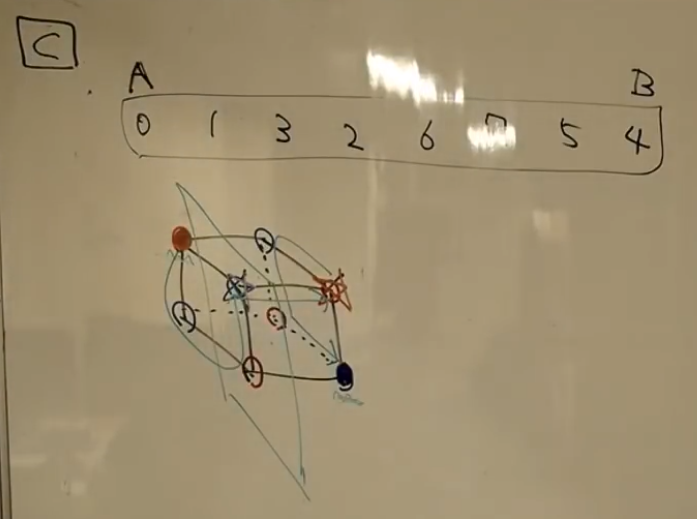 C
A B
0 1 3 2 6 7 5 4